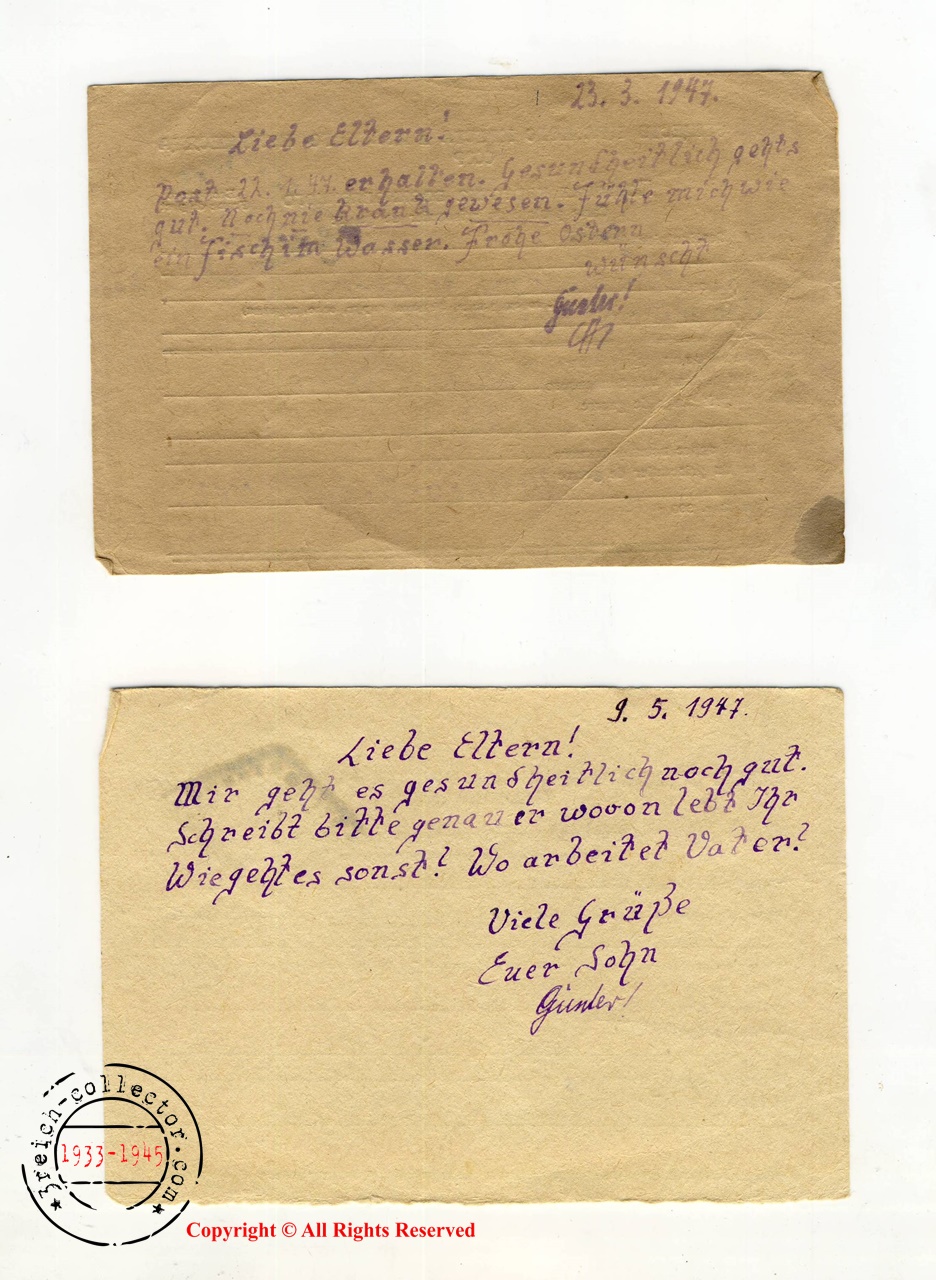 23. 3. 1947.
Liebe Eltern!
Post 22. 1. 47. erhalten. Gesundheitlich gehts
gut. Noch nie krank gewesen. Fühle mich wie
ein Fisch im Wasser. Frohe Ostern
wünscht
Günter!
9. 5. 1947.
Liebe Eltern!
Mir geht es gesundheitlich noch gut.
Schreibt bitte genauer wovon lebt Ihr
Wie geht es sonst? Wo arbeitet Vater?
Viele Grüße
Euer Sohn
Günter!
3reich-collector.com
1933-1945
Copyright © All Rights Reserved